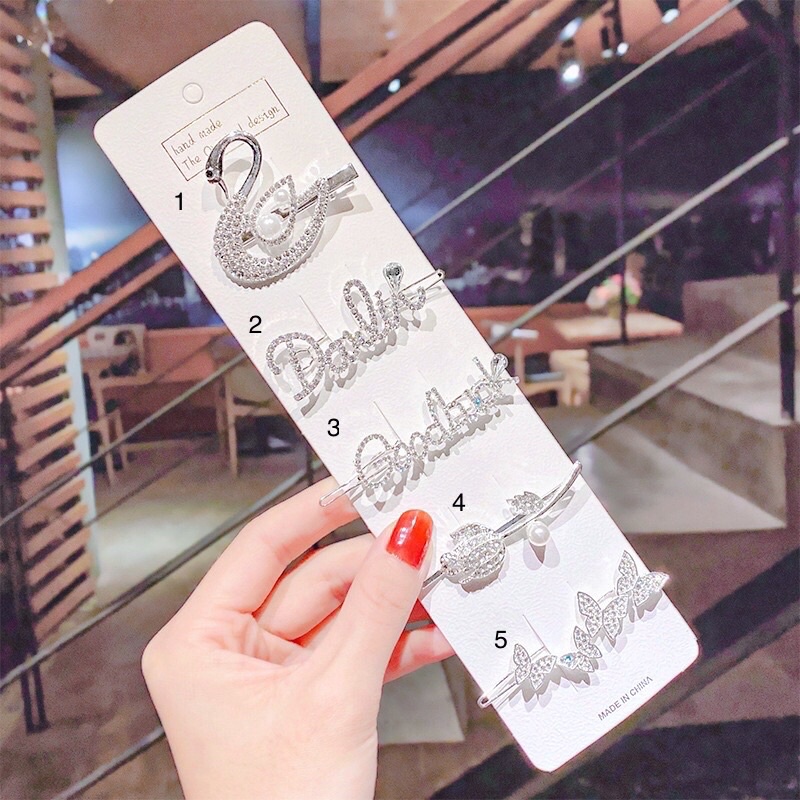 hand made
The design
1
2
Darlin
3
Goodluck
4
5
MADE IN CHINA